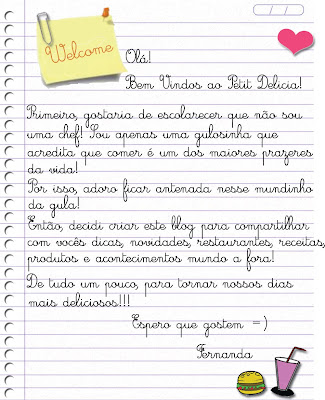 Welcome
Olá!
Bem Vindos ao Petit Delicia!
Primeiro, gostaria de escolarecer que não sou
uma chef! Sou apenas uma gulosinha que
acredita que comer é um dos maiores prazeres
da vida!
Por isso, adoro ficar antenada nesse mundinho
da gula!
Então, decidi criar este blog para compartilhar
com vocês dicas, novidades, restaurantes, receitas,
produtos e acontecimentos mundo a fora!
De tudo um pouco, para tornar nossos dias
mais deliciosos!!!
Espero que gostem =)
Fernanda